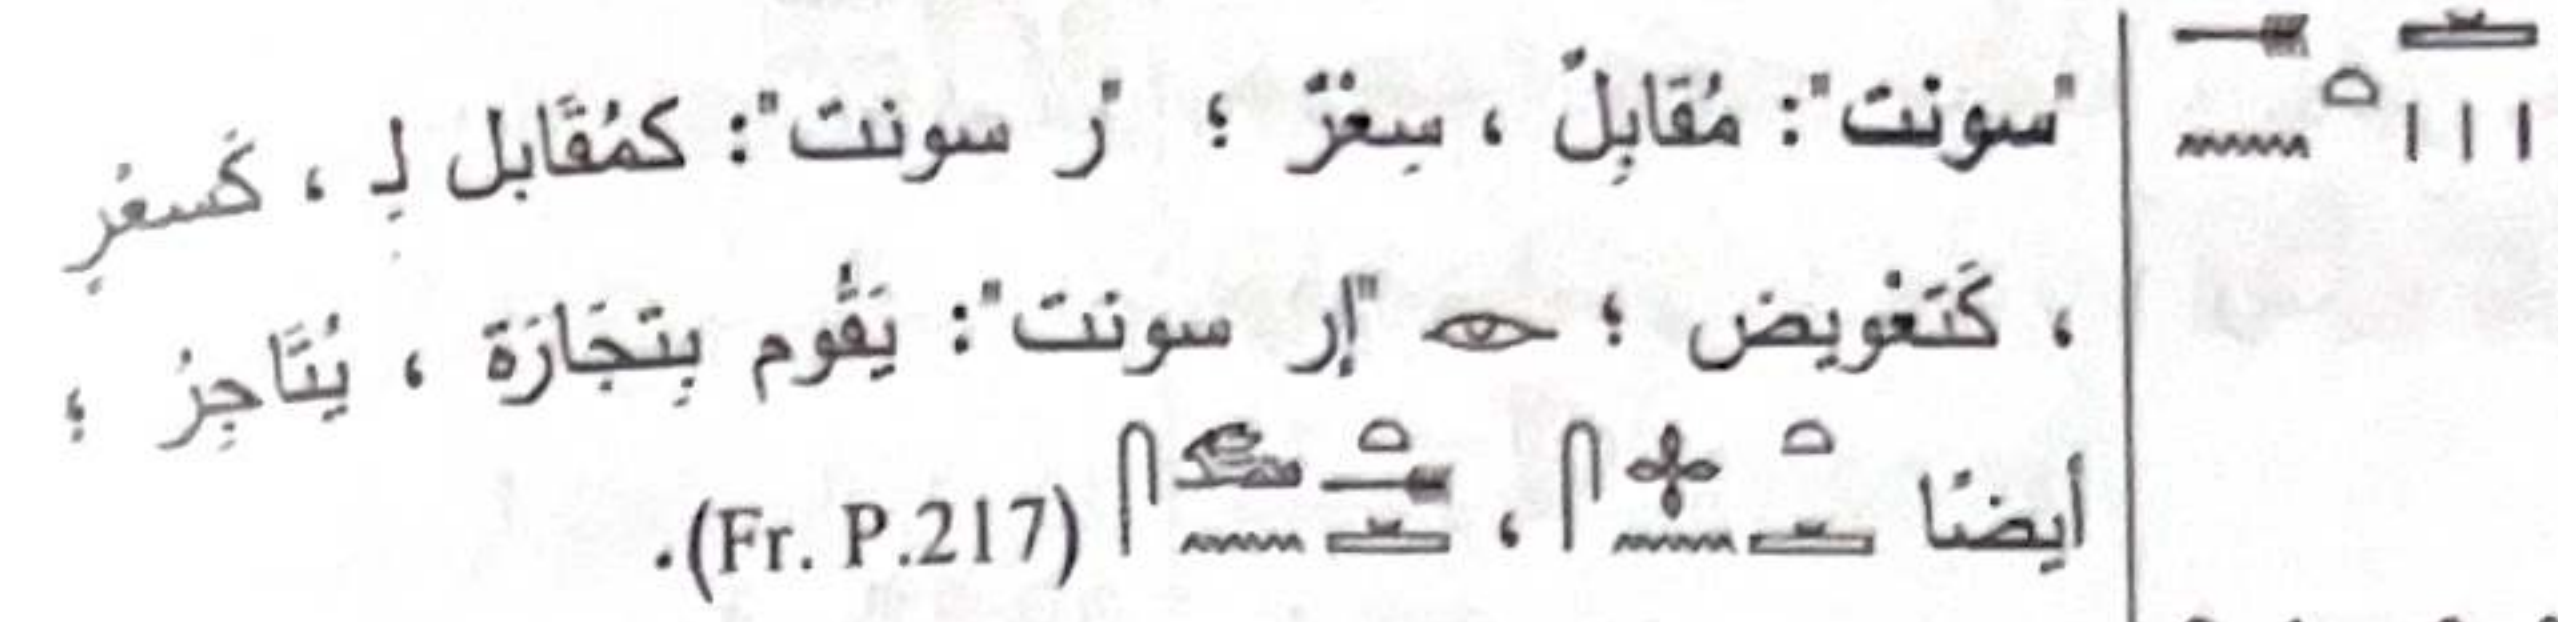 "سونت": مُقَابِلٌ ، سِعْرٌ ؛ "ر سونت": كمُقَابل لِـ ، كَسعْرٍ
، كَتَعْويض ؛ 𓁹 "إر سونت": يَقُوم بِتجَارَة ، يُتَاجِرُ ؛
أيضًا (Fr. P.217).